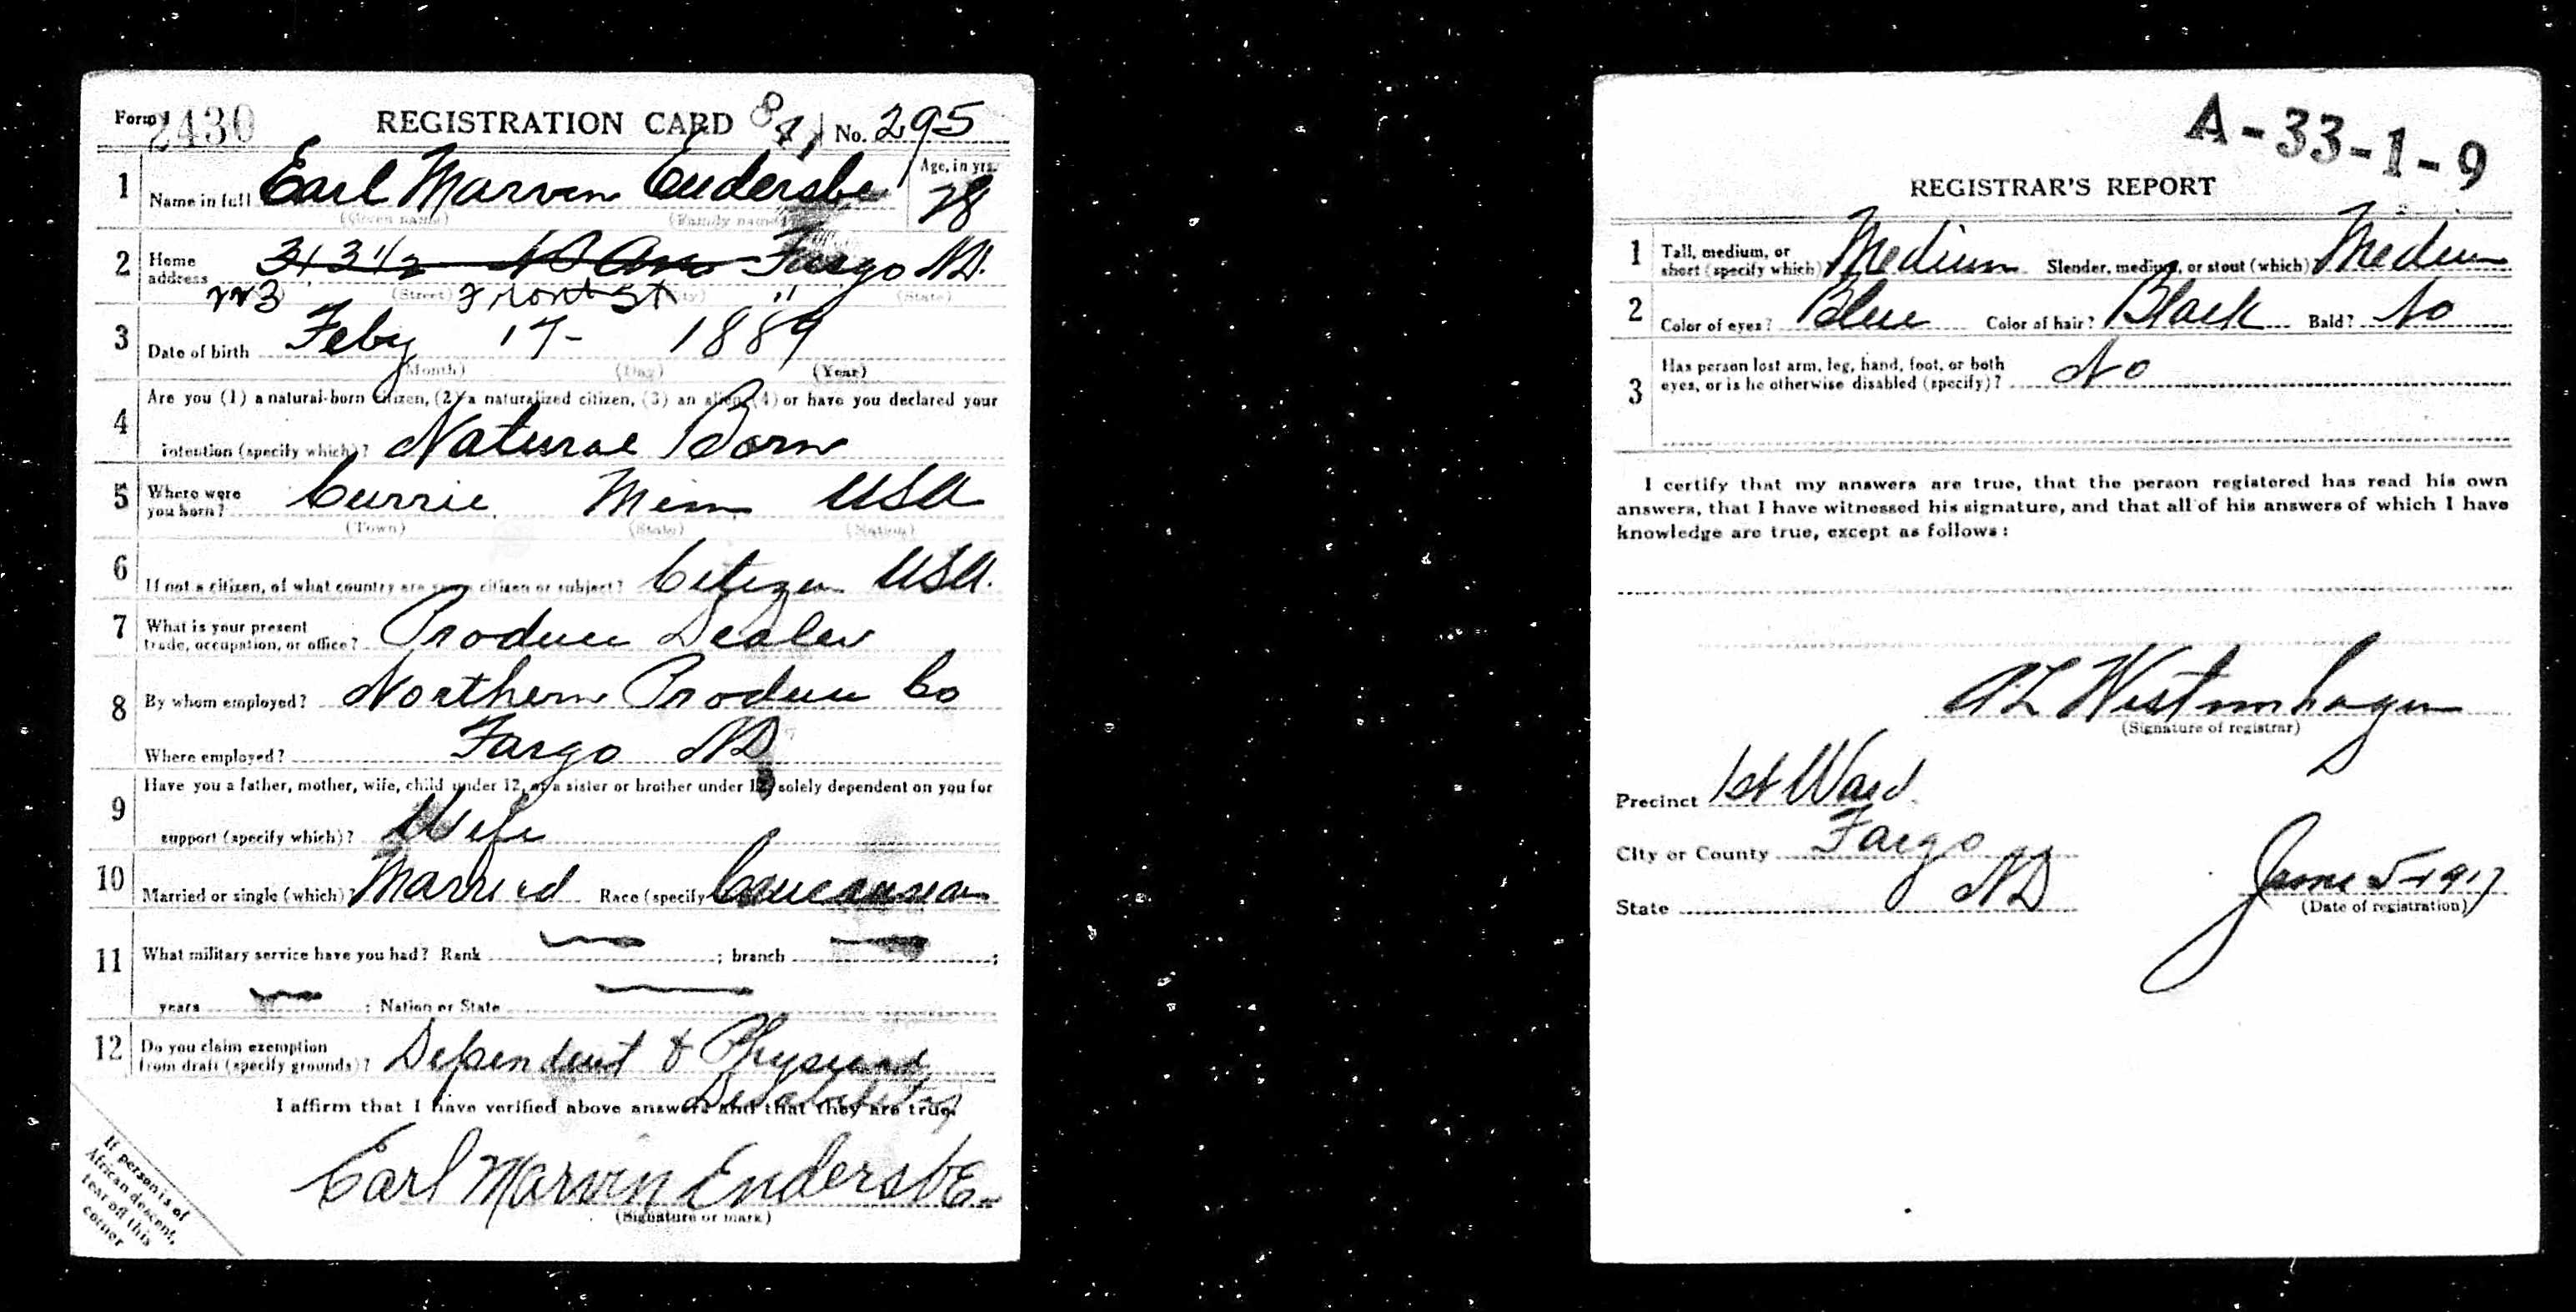 Form 1 2430 REGISTRATION CARD No. 295
1 Name in full Earl Marvin Endersbe Age, in yrs. 28
(Given name) (Family name)
2 Home address 313½ Fargo ND.
223 Front St "
(Street) (City) (State)
3 Date of birth Feby 17- 1889
(Month) (Day) (Year)
4 Are you (1) a natural-born citizen, (2) a naturalized citizen, (3) an alien, (4) or have you declared your
intention (specify which)? Natural Born
5 Where were you born? Currie, Minn USA
(Town) (State) (Nation)
6 If not a citizen, of what country are you a citizen or subject? Citizen USA.
7 What is your present trade, occupation, or office? Produce Dealer
8 By whom employed? Northern Produce Co
Where employed? Fargo ND
9 Have you a father, mother, wife, child under 12, or a sister or brother under 12, solely dependent on you for
support (specify which)? Wife
10 Married or single (which)? Married Race (specify Caucasian
11 What military service have you had? Rank ; branch ;
years ; Nation or State
12 Do you claim exemption from draft (specify grounds)? Dependent & Physical
Disability
I affirm that I have verified above answers and that they are true.
Earl Marvin EndersbE
(Signature or mark)
If person is of
African descent,
tear off this
corner
A-33-1-9
REGISTRAR'S REPORT
1 Tall, medium, or short (specify which) Medium Slender, medium, or stout (which) Medium
2 Color of eyes? Blue Color of hair? Black Bald? No
3 Has person lost arm, leg, hand, foot, or both
eyes, or is he otherwise disabled (specify)? No
I certify that my answers are true, that the person registered has read his own
answers, that I have witnessed his signature, and that all of his answers of which I have
knowledge are true, except as follows:
(Signature of registrar)
Precinct 1st Ward.
City or County Fargo
State ND
June 5-1917
(Date of registration)